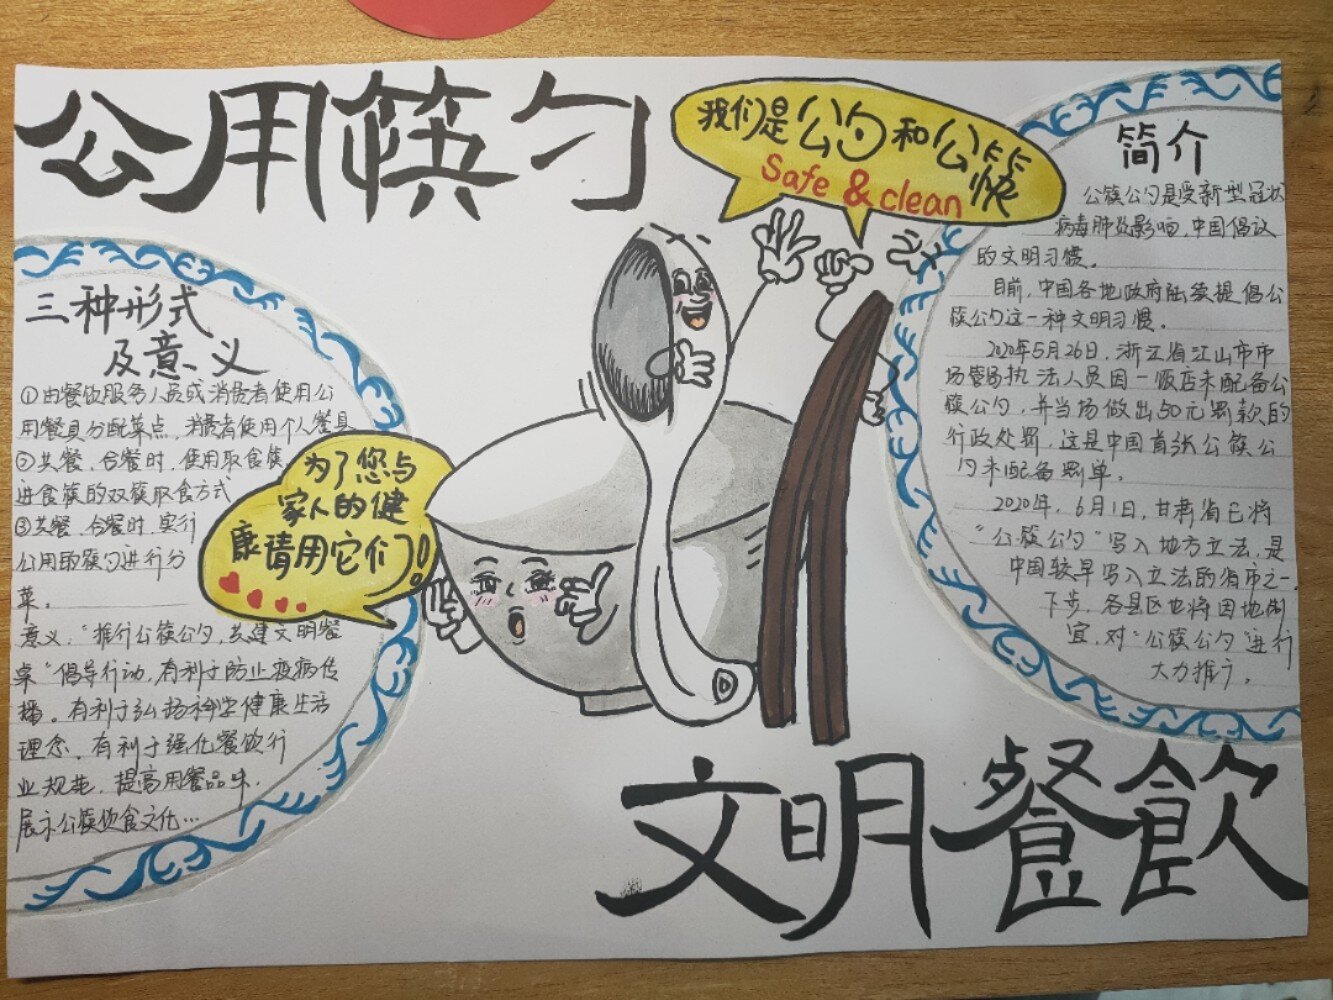 公用筷勺
我们是公勺和公筷
Safe & clean
三种形式
及意义
①由餐饮服务人员或消费者使用公
用餐具分配菜点,消费者使用个人餐具
②共餐、合餐时,使用取食筷
进食筷的双筷取食方式
③共餐、合餐时,实行
公用取筷勺进行分
菜。
意义,“推行公筷公勺,共建文明餐
桌”倡导行动,有利于防止疫病传
播。有利于弘扬科学健康生活
理念,有利于强化餐饮行
业规范,提高用餐品味,
展示公筷饮食文化…
为了您与
家人的健
康请用它们!
简介
公筷公勺是受新型冠状
病毒肺炎影响,中国倡议
的文明习惯。
目前,中国各地政府陆续提倡公
筷公勺这一种文明习惯。
2020年5月26日,浙江省江山市市
场管局执法人员因一饭店未配备公
筷公勺,并当场做出50元罚款的
行政处罚,这是中国首张公筷公
勺未配备罚单。
2020年,6月1日,甘肃省已将
“公筷公勺”写入地方立法,是
中国较早写入立法的省市之一,
下步,各县区也将因地制
宜,对“公筷公勺”进行
大力推广。
文明餐飲